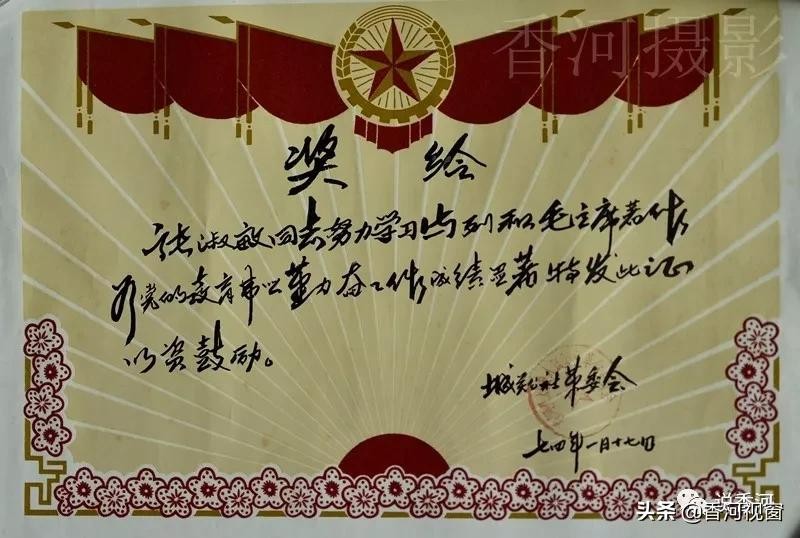 香河摄影
奖给
张淑敏同志努力学习马列和毛主席著作
为党的教育事业勤力奋工作成绩显著特发此证
以资鼓励。
城关公社革委会
七四年一月十七日
说香河
头条@香河视窗